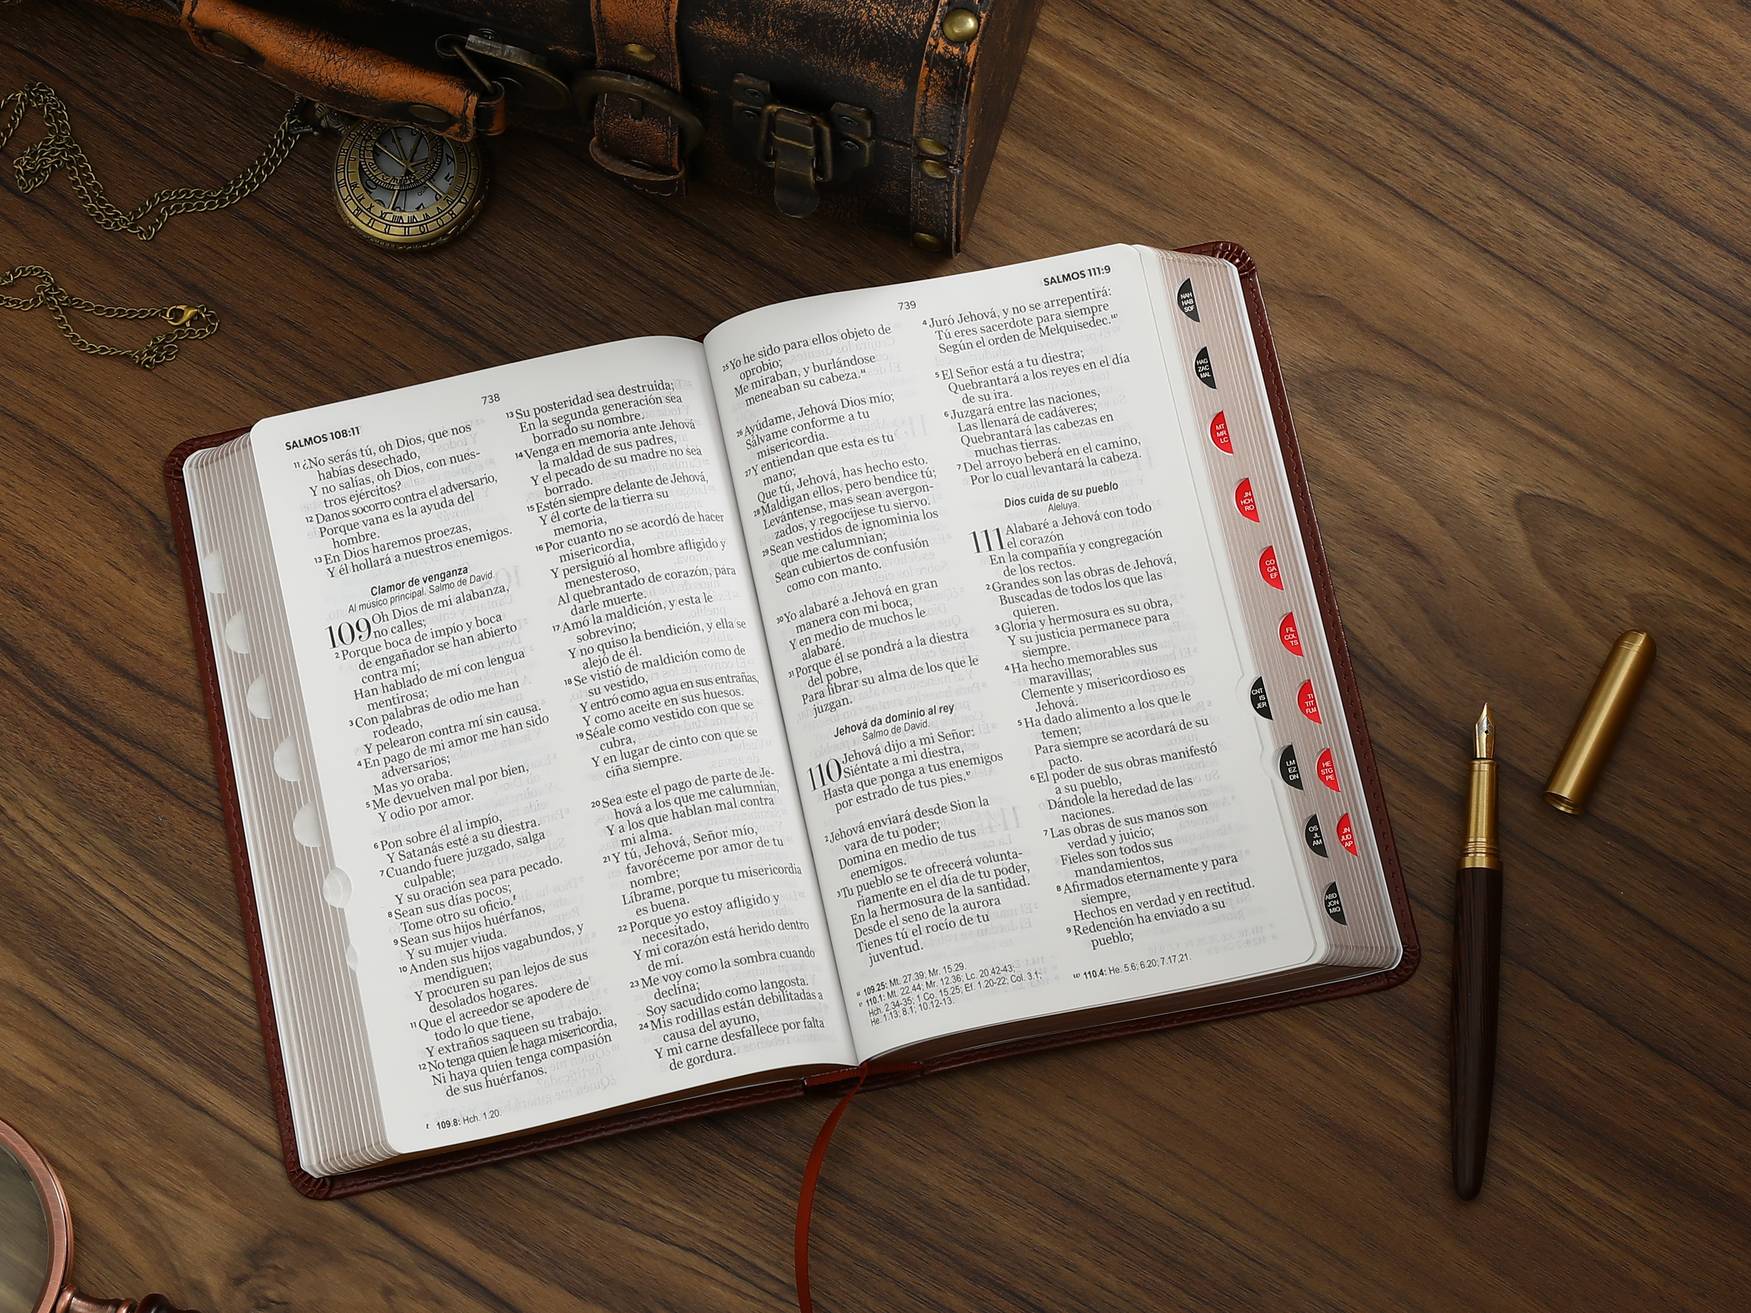 SALMOS 108:11
738
11 ¿No serás tú, oh Dios, que nos
habías desechado,
Y no salías, oh Dios, con nues-
tros ejércitos?
12 Danos socorro contra el adversario,
Porque vana es la ayuda del
hombre.
13 En Dios haremos proezas,
Y él hollará a nuestros enemigos.
Clamor de venganza
Al músico principal. Salmo de David.
109 Oh Dios de mi alabanza,
no calles;
2 Porque boca de impío y boca
de engañador se han abierto
contra mí;
Han hablado de mí con lengua
mentirosa;
3 Con palabras de odio me han
rodeado,
Y pelearon contra mí sin causa.
4 En pago de mi amor me han sido
adversarios;
Mas yo oraba.
5 Me devuelven mal por bien,
Y odio por amor.
6 Pon sobre él al impío,
Y Satanás esté a su diestra.
7 Cuando fuere juzgado, salga
culpable;
Y su oración sea para pecado.
8 Sean sus días pocos;
Tome otro su oficio.t
9 Sean sus hijos huérfanos,
Y su mujer viuda.
10 Anden sus hijos vagabundos, y
mendiguen;
Y procuren su pan lejos de sus
desolados hogares.
11 Que el acreedor se apodere de
todo lo que tiene,
Y extraños saqueen su trabajo.
12 No tenga quien le haga misericordia,
Ni haya quien tenga compasión
de sus huérfanos.
13 Su posteridad sea destruida;
En la segunda generación sea
borrado su nombre.
14 Venga en memoria ante Jehová
la maldad de sus padres,
Y el pecado de su madre no sea
borrado.
15 Estén siempre delante de Jehová,
Y él corte de la tierra su
memoria,
16 Por cuanto no se acordó de hacer
misericordia,
Y persiguió al hombre afligido y
menesteroso,
Al quebrantado de corazón, para
darle muerte.
17 Amó la maldición, y esta le
sobrevino;
Y no quiso la bendición, y ella se
alejó de él.
18 Se vistió de maldición como de
su vestido,
Y entró como agua en sus entrañas,
Y como aceite en sus huesos.
19 Séale como vestido con que se
cubra,
Y en lugar de cinto con que se
ciña siempre.
20 Sea este el pago de parte de Je-
hová a los que me calumnian,
Y a los que hablan mal contra
mi alma.
21 Y tú, Jehová, Señor mío,
favoréceme por amor de tu
nombre;
Líbrame, porque tu misericordia
es buena.
22 Porque yo estoy afligido y
necesitado,
Y mi corazón está herido dentro
de mí.
23 Me voy como la sombra cuando
declina;
Soy sacudido como langosta.
24 Mis rodillas están debilitadas a
causa del ayuno,
Y mi carne desfallece por falta
de gordura.
t 109.8: Hch. 1.20.
739
SALMOS 111:9
25 Yo he sido para ellos objeto de
oprobio;
Me miraban, y burlándose
meneaban su cabeza.u
26 Ayúdame, Jehová Dios mío;
Sálvame conforme a tu
misericordia.
27 Y entiendan que esta es tu
mano;
Que tú, Jehová, has hecho esto.
28 Maldigan ellos, pero bendice tú;
Levántense, mas sean avergon-
zados, y regocíjese tu siervo.
29 Sean vestidos de ignominia los
que me calumnian;
Sean cubiertos de confusión
como con manto.
30 Yo alabaré a Jehová en gran
manera con mi boca,
Y en medio de muchos le
alabaré.
31 Porque él se pondrá a la diestra
del pobre,
Para librar su alma de los que le
juzgan.
Jehová da dominio al rey
Salmo de David.
110 Jehová dijo a mi Señor:
Siéntate a mi diestra,
Hasta que ponga a tus enemigos
por estrado de tus pies.v
2 Jehová enviará desde Sion la
vara de tu poder;
Domina en medio de tus
enemigos.
3 Tu pueblo se te ofrecerá volunta-
riamente en el día de tu poder,
En la hermosura de la santidad.
Desde el seno de la aurora
Tienes tú el rocío de tu
juventud.
4 Juró Jehová, y no se arrepentirá:
Tú eres sacerdote para siempre
Según el orden de Melquisedec.w
5 El Señor está a tu diestra;
Quebrantará a los reyes en el día
de su ira.
6 Juzgará entre las naciones,
Las llenará de cadáveres;
Quebrantará las cabezas en
muchas tierras.
7 Del arroyo beberá en el camino,
Por lo cual levantará la cabeza.
Dios cuida de su pueblo
Aleluya.
111 Alabaré a Jehová con todo
el corazón
En la compañía y congregación
de los rectos.
2 Grandes son las obras de Jehová,
Buscadas de todos los que las
quieren.
3 Gloria y hermosura es su obra,
Y su justicia permanece para
siempre.
4 Ha hecho memorables sus
maravillas;
Clemente y misericordioso es
Jehová.
5 Ha dado alimento a los que le
temen;
Para siempre se acordará de su
pacto.
6 El poder de sus obras manifestó
a su pueblo,
Dándole la heredad de las
naciones.
7 Las obras de sus manos son
verdad y juicio;
Fieles son todos sus
mandamientos,
8 Afirmados eternamente y para
siempre,
Hechos en verdad y en rectitud.
9 Redención ha enviado a su
pueblo;
u 109.25: Mt. 27.39; Mr. 15.29.
v 110.1: Mt. 22.44; Mr. 12.36; Lc. 20.42-43;
Hch. 2.34-35; 1 Co. 15.25; Ef. 1.20-22; Col. 3.1;
He. 1.13; 8.1; 10.12-13.
w 110.4: He. 5.6; 6.20; 7.17,21.
NAH
HAB
SOF
HAG
ZAC
MAL
MT
MR
LC
JN
HCH
RO
CO
GA
EF
FIL
COL
TS
CNT
IS
JER
TI
TIT
FLM
LM
EZ
DN
HE
STG
PE
OS
JL
AM
JN
JUD
AP
ABD
JON
MIQ